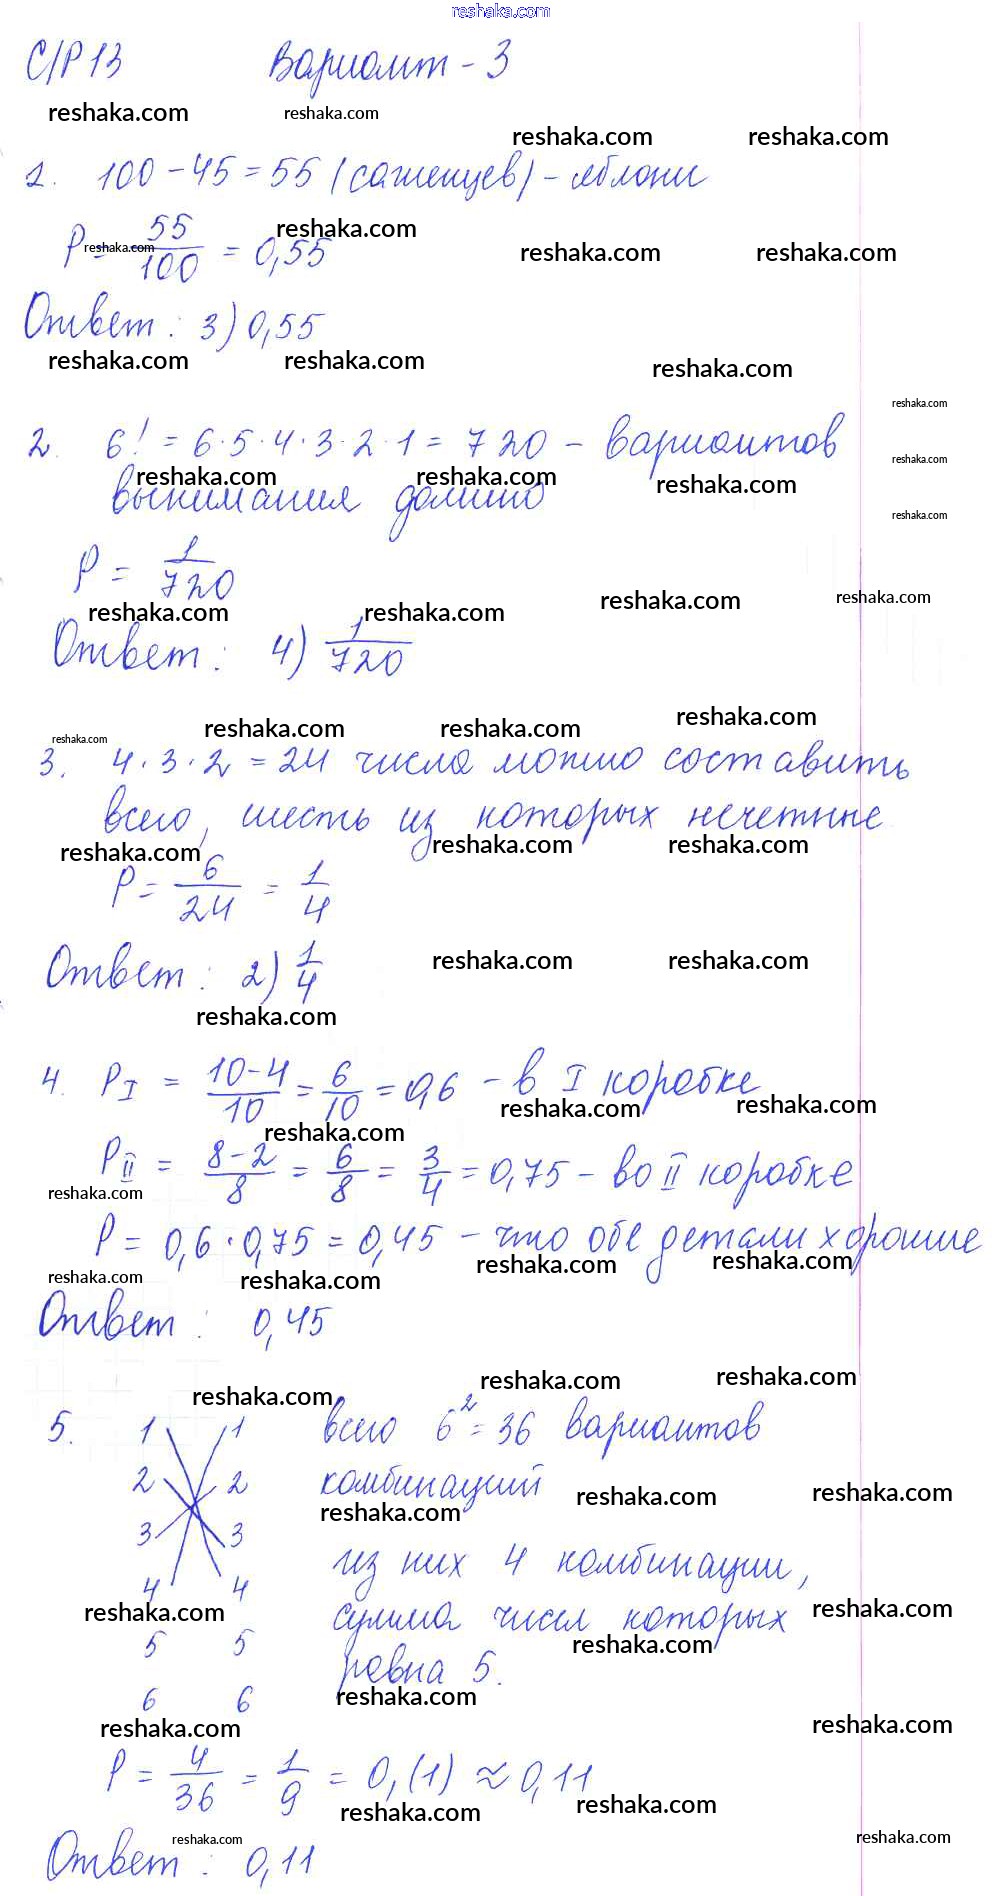 reshaka.com
С/Р 13 Вариант - 3
reshaka.com reshaka.com reshaka.com reshaka.com
1. 100 - 45 = 55 (саженцев) - яблони
P = 55/100 = 0,55
reshaka.com reshaka.com reshaka.com reshaka.com
Ответ: 3) 0,55
reshaka.com reshaka.com reshaka.com
reshaka.com
2. 6! = 6·5·4·3·2·1 = 720 - вариантов
reshaka.com reshaka.com reshaka.com reshaka.com
вынимания домино
reshaka.com
P = 1/720
reshaka.com reshaka.com reshaka.com reshaka.com
Ответ: 4) 1/720
reshaka.com reshaka.com reshaka.com reshaka.com
3. 4·3·2 = 24 числа можно составить
всего, шесть из которых нечетные
reshaka.com reshaka.com reshaka.com
P = 6/24 = 1/4
Ответ: 2) 1/4
reshaka.com reshaka.com
reshaka.com
4. P_I = (10-4)/10 = 6/10 = 0,6 - в I коробке
reshaka.com reshaka.com
reshaka.com
P_II = (8-2)/8 = 6/8 = 3/4 = 0,75 - во II коробке
reshaka.com
P = 0,6·0,75 = 0,45 - что обе детали хорошие
reshaka.com reshaka.com reshaka.com reshaka.com
Ответ: 0,45
reshaka.com reshaka.com reshaka.com
5. 1 1 всего 6² = 36 вариантов
2 2 комбинаций
reshaka.com reshaka.com reshaka.com
3 3
из них 4 комбинации,
4 4
reshaka.com reshaka.com
сумма чисел которых
5 5
reshaka.com
равна 5.
6 6
reshaka.com reshaka.com reshaka.com
P = 4/36 = 1/9 = 0,(1) ≈ 0,11
reshaka.com reshaka.com
reshaka.com reshaka.com
Ответ: 0,11